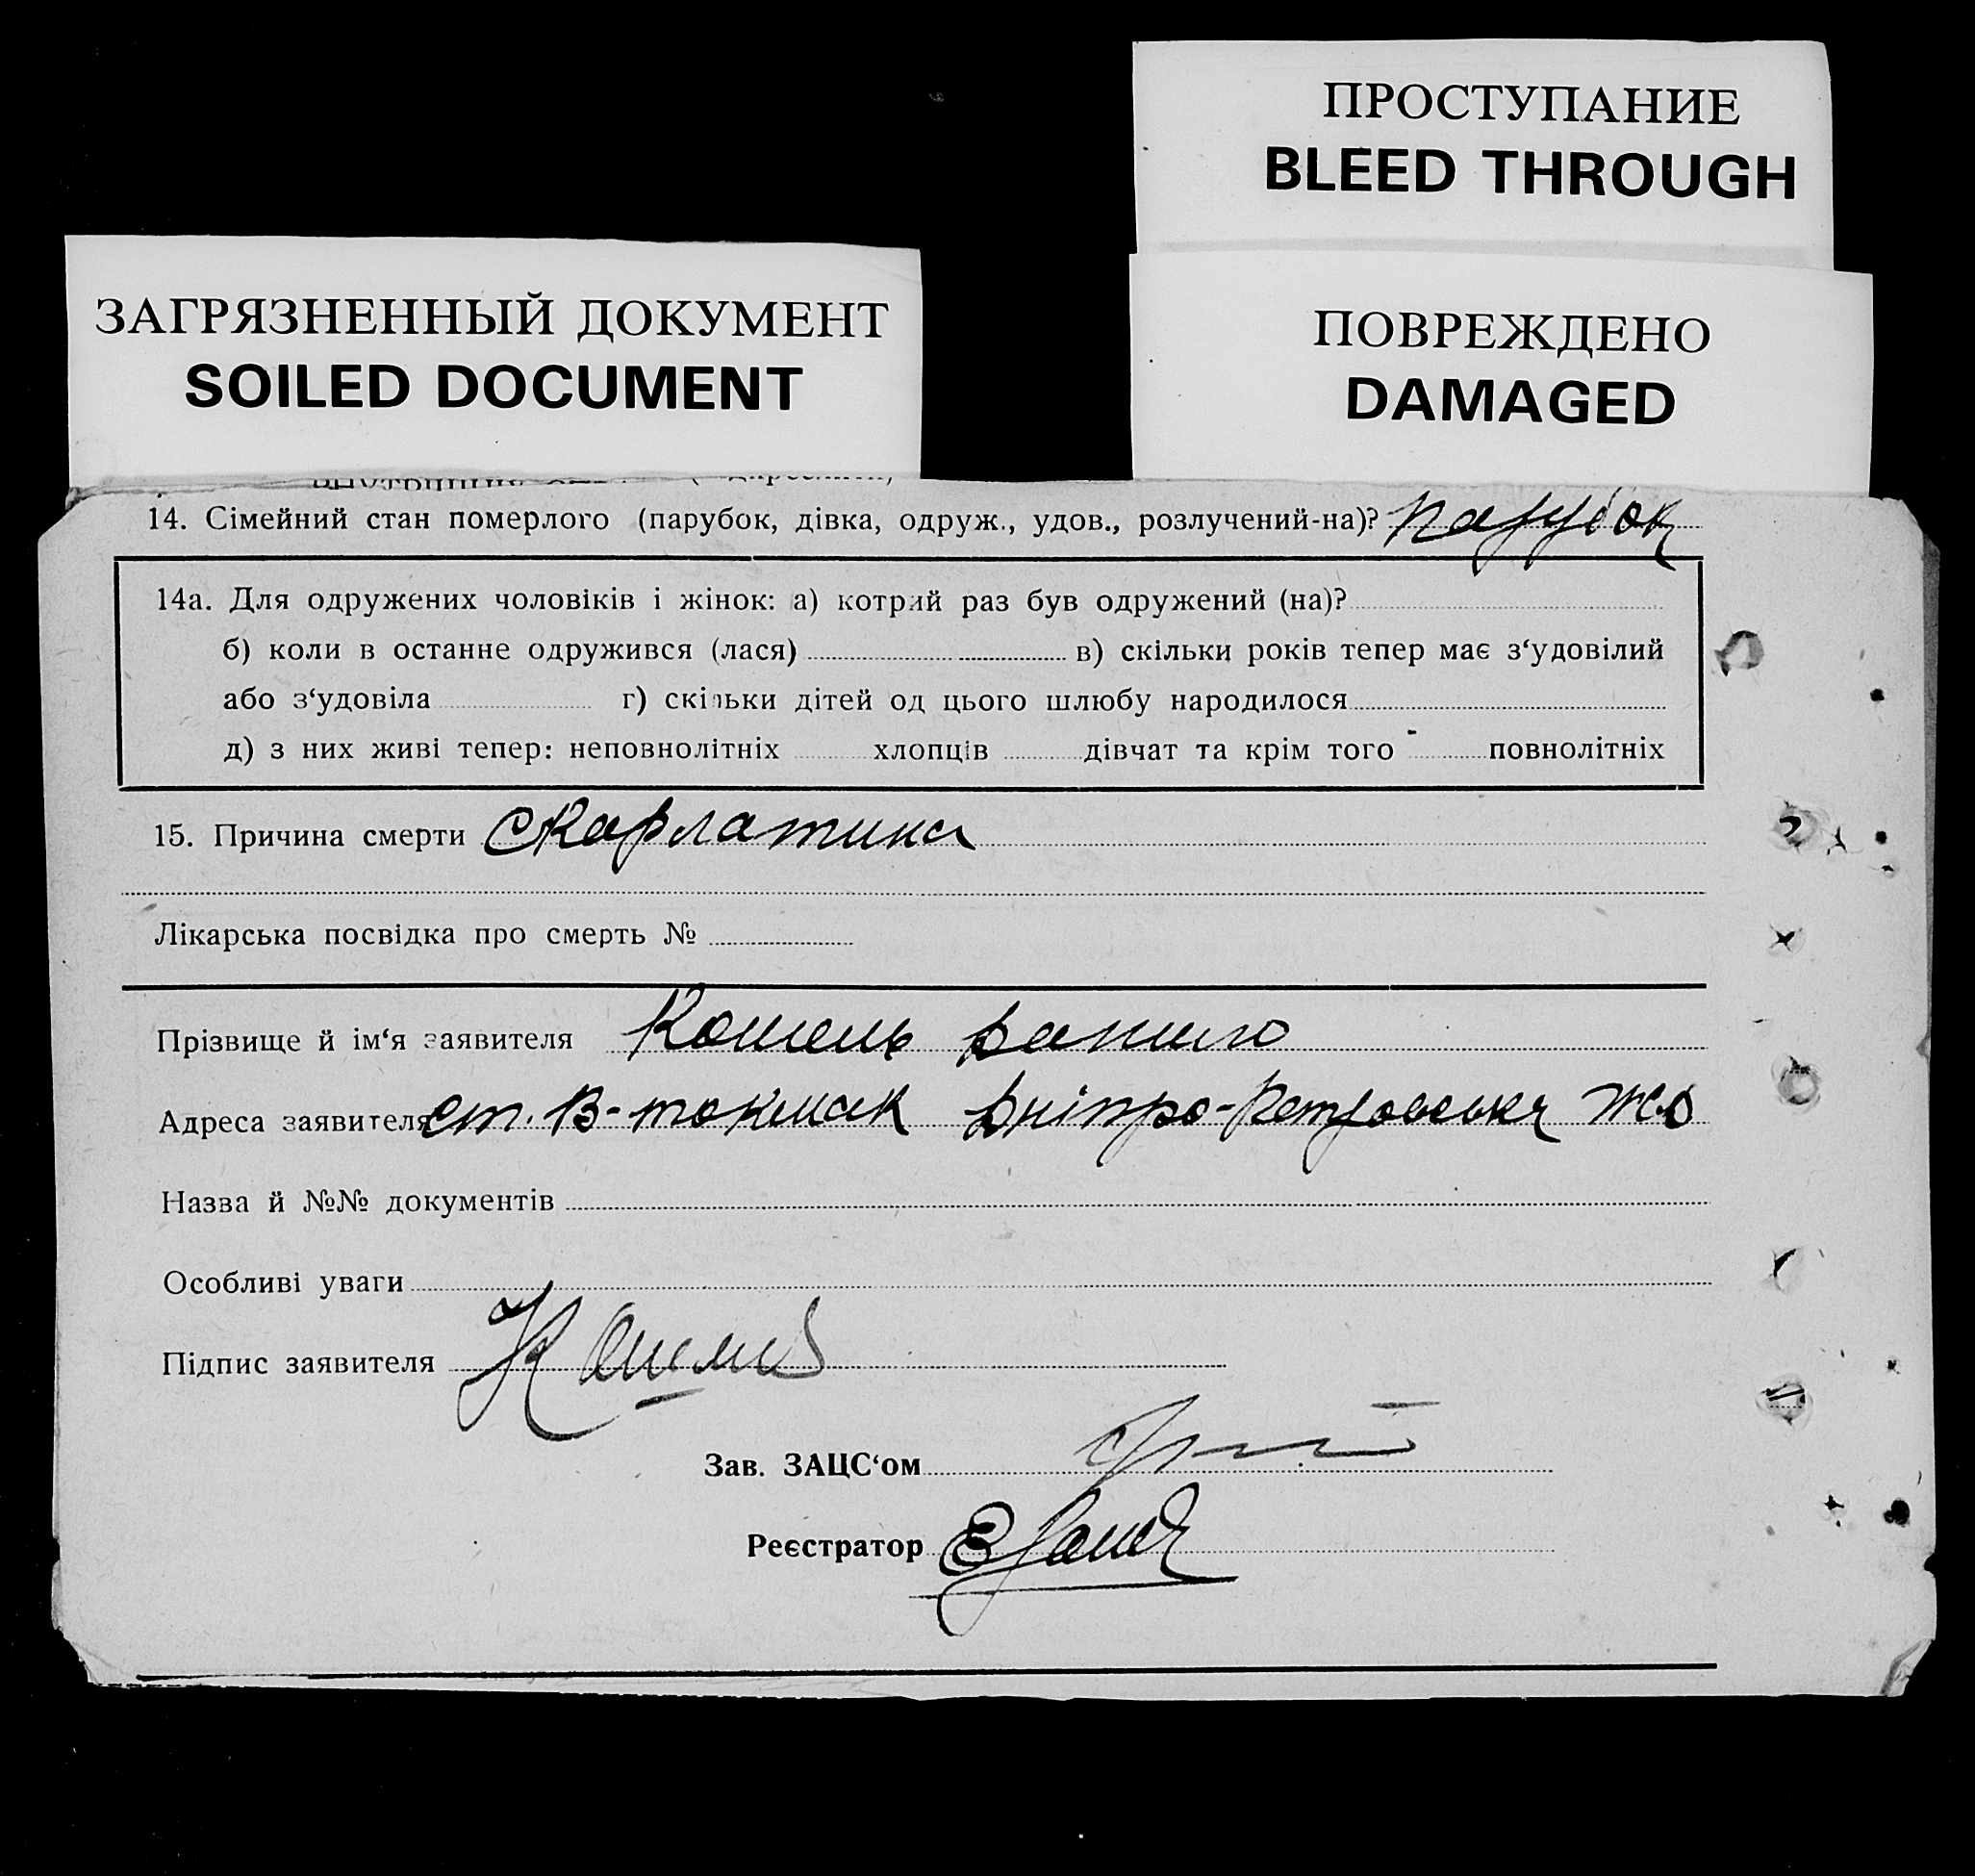 ПРОСТУПАНИЕ
BLEED THROUGH
ЗАГРЯЗНЕННЫЙ ДОКУМЕНТ
SOILED DOCUMENT
ПОВРЕЖДЕНО
DAMAGED
14. Сімейний стан померлого (парубок, дівка, одруж., удов., розлучений-на)? парубок
14а. Для одружених чоловіків і жінок: а) котрий раз був одружений (на)?
б) коли в останне одружився (лася) в) скільки років тепер має з‘удовілий
або з‘удовіла г) скільки дітей од цього шлюбу народилося
д) з них живі тепер: неповнолітніх хлопців дівчат та крім того повнолітніх
15. Причина смерти Скарлатина
Лікарська посвідка про смерть №
Прізвище й ім‘я заявителя Кошель Данило
Адреса заявителя ст. В-токмак Дніпро-Петровська
Назва й №№ документів
Особливі уваги
Підпис заявителя
Зав. ЗАЦС‘ом
Реєстратор